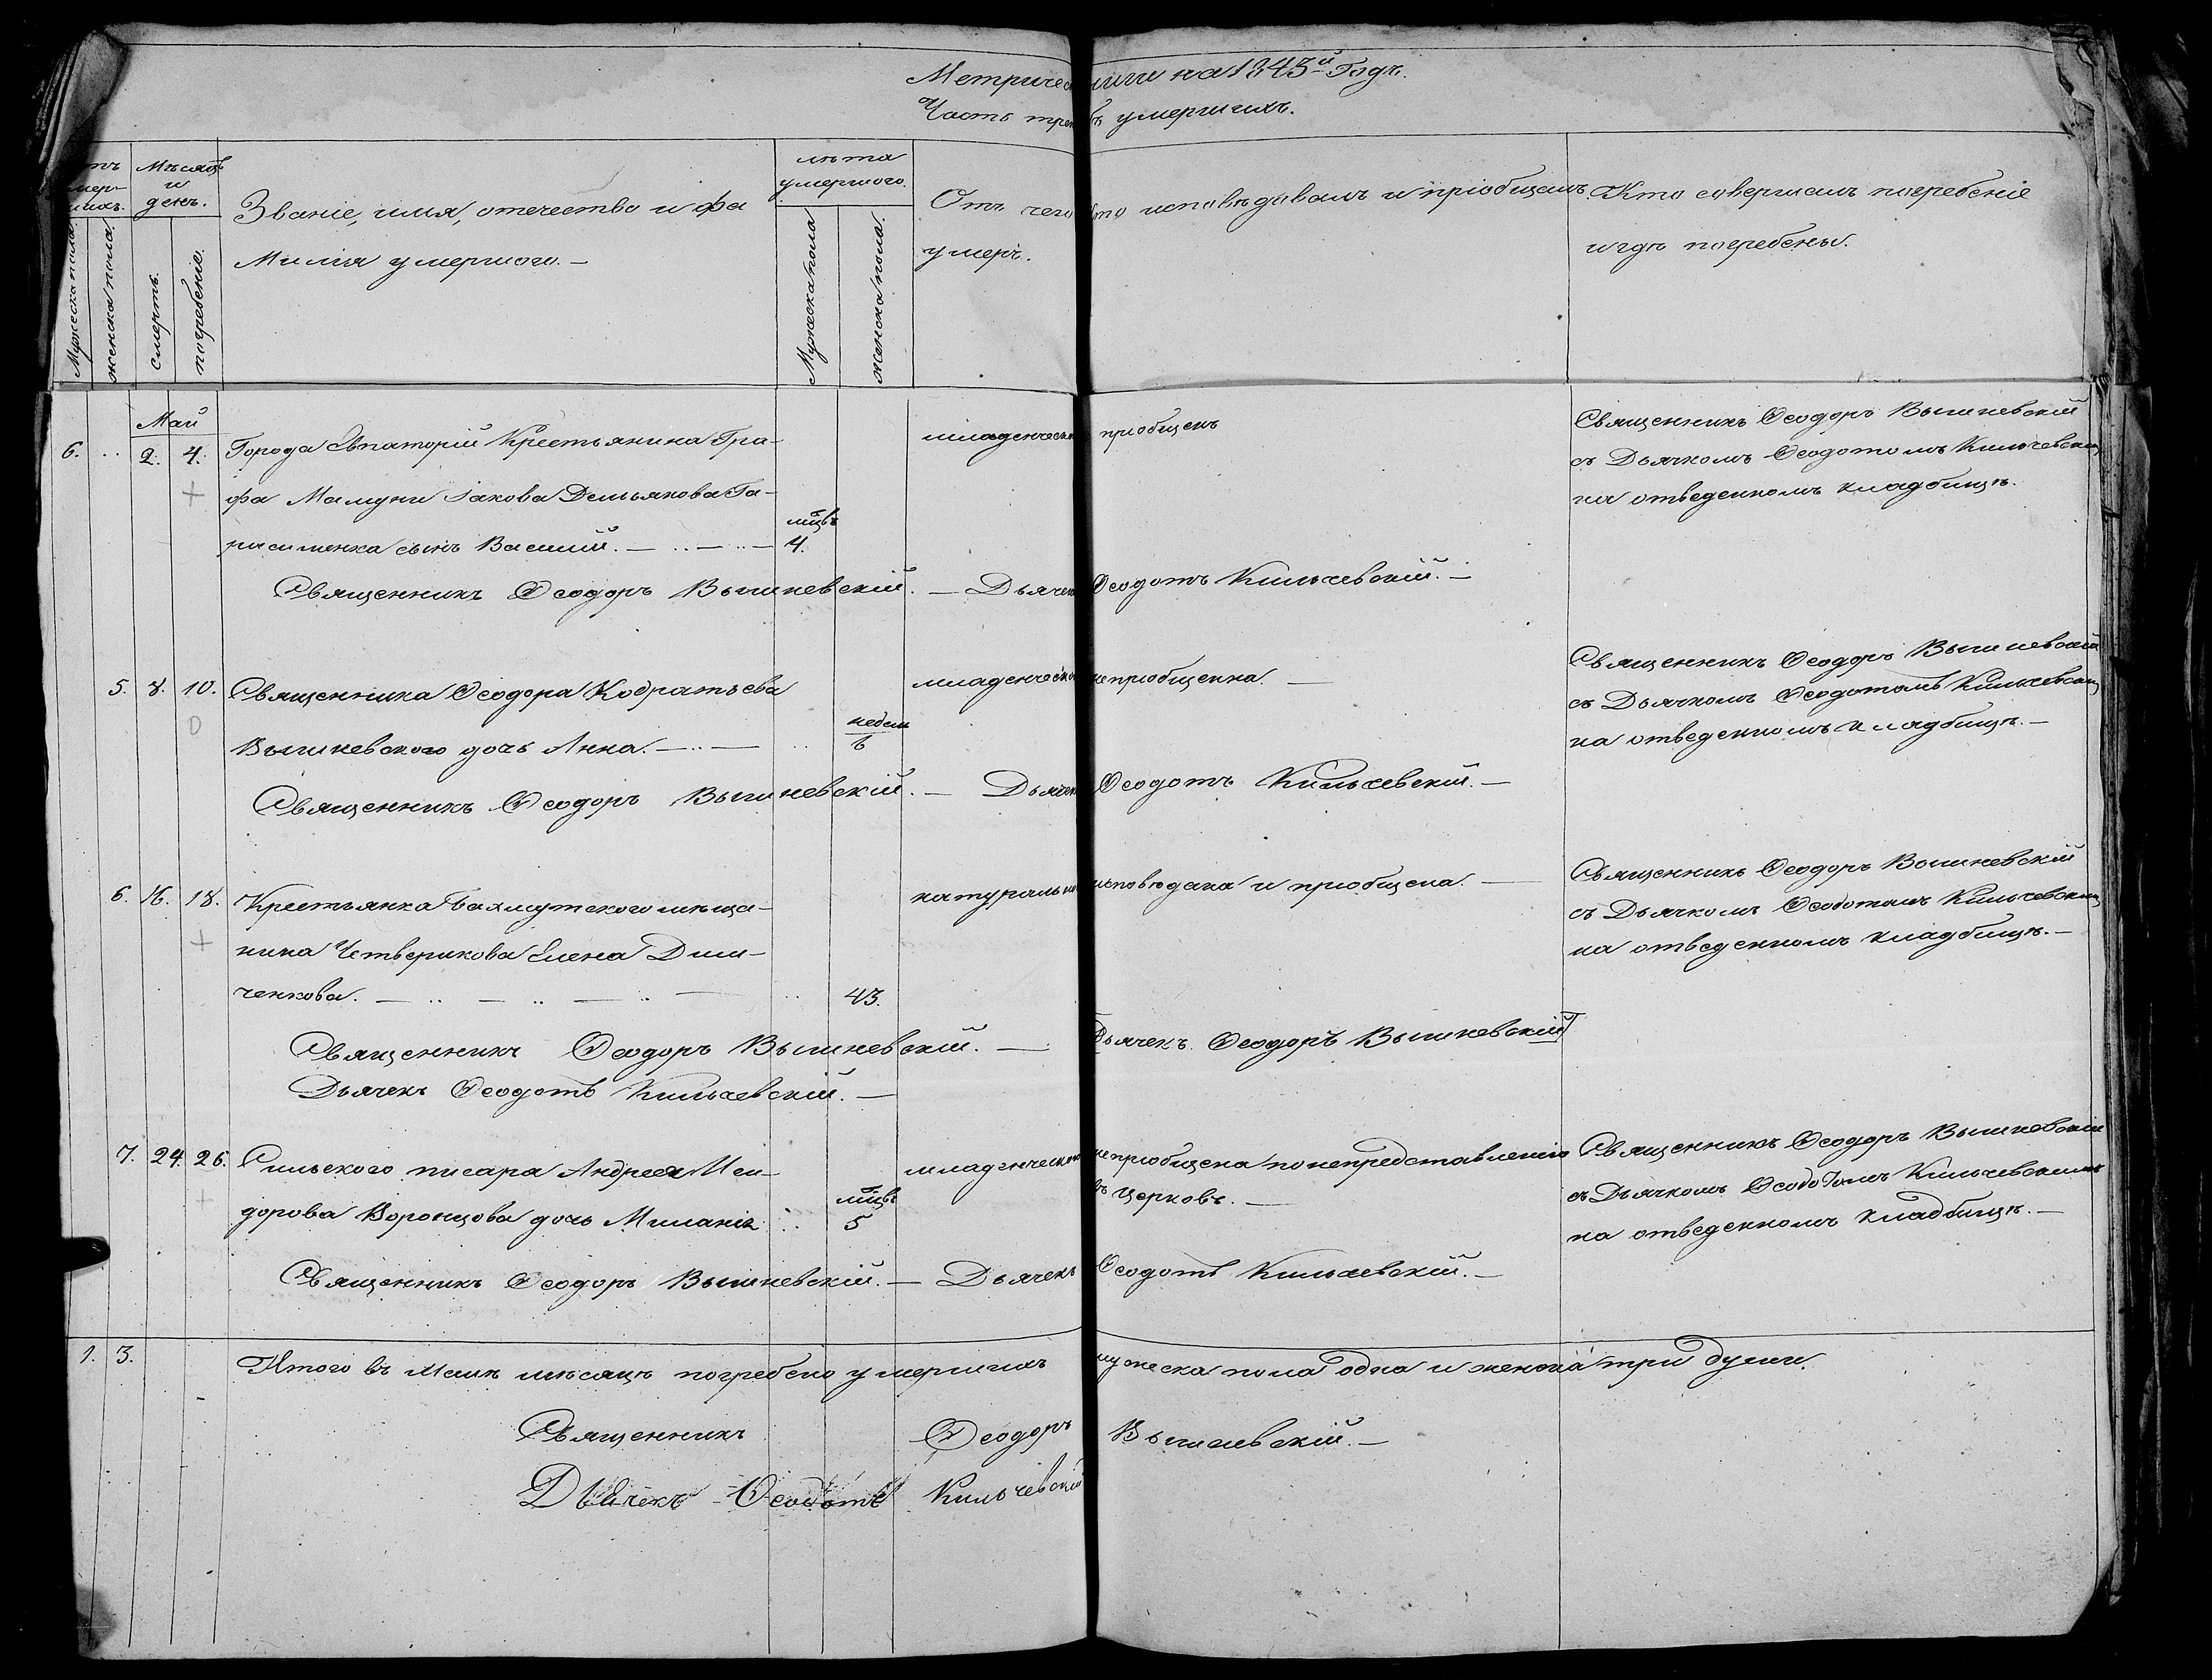 Метричес ниги на 1843й Годъ.
Часть тре ъ умершихъ.
Мѣсяцъ и день.
Званіе, имя, отечество и фа
милія умершого.
лѣта умершого.
Отъ чего умеръ.
то исповѣдывалъ и пріобщалъ.
Кто совершалъ погребеніе
и гдѣ погребены.
Мужеска пола.
женска пола.
смерть.
погребеніе.
Мужеска пола
женска пола.
Май
6. .. 2. 4. Города Евпаторій Крестьянина Гра-
фа Мамуни Іакова Демьянова Га-
расименка сынъ Василій. мцвъ 4.
младенческ пріобщенъ
Священникъ Ѳеодоръ Вышневскій
съ Дьячкомъ Ѳеодотомъ Кильчевским
на отведенномъ кладбищѣ.
Священникъ Ѳеодоръ Вышневскій. — Дьячек Ѳеодотъ Кильчевскій. —
5. 8. 10. Священника Ѳеодора Кодратьева
Вышневского дочь Анна. недель 6
младенческо непріобщенна. —
Священникъ Ѳеодоръ Вышневскій
съ Дьячкомъ Ѳеодотомъ Кильчевским
на отведенномъ кладбищѣ. —
Священникъ Ѳеодоръ Вышневскій. — Дьячек Ѳеодотъ Кильчевскій. —
6. 16. 18. Крестьянка Бахмутского мѣща-
нина Четверикова Елена Дми-
ченкова. 43.
натуральн исповѣдана и пріобщена. —
Священникъ Ѳеодоръ Вышневскій
съ Дьячкомъ Ѳеодотомъ Кильчевским
на отведенномъ кладбищѣ. —
Священникъ Ѳеодоръ Вышневскій. — Дьячекъ Ѳеодоръ Вышневскій
Дьячекъ Ѳеодотъ Кильчевскій. —
7. 24. 26. Сильского писара Андрея Иси-
дорова Воронцова дочь Миланія мцвъ 5
младенческ непріобщена по непредставленію
въ церковь. —
Священникъ Ѳеодоръ Вышневскій
съ Дьячкомъ Ѳеодотомъ Кильчевскимъ
на отведенномъ кладбищѣ. —
Священникъ Ѳеодоръ Вышневскій. — Дьячекъ Ѳеодотъ Кильчевскій. —
1. 3. Итого въ Маѣ мѣсяцѣ погребено умершихъ мужеска пола одна и женска три души.
Священникъ Ѳеодоръ Вышневскій. —
Дьячекъ Ѳеодотъ Кильчевскій